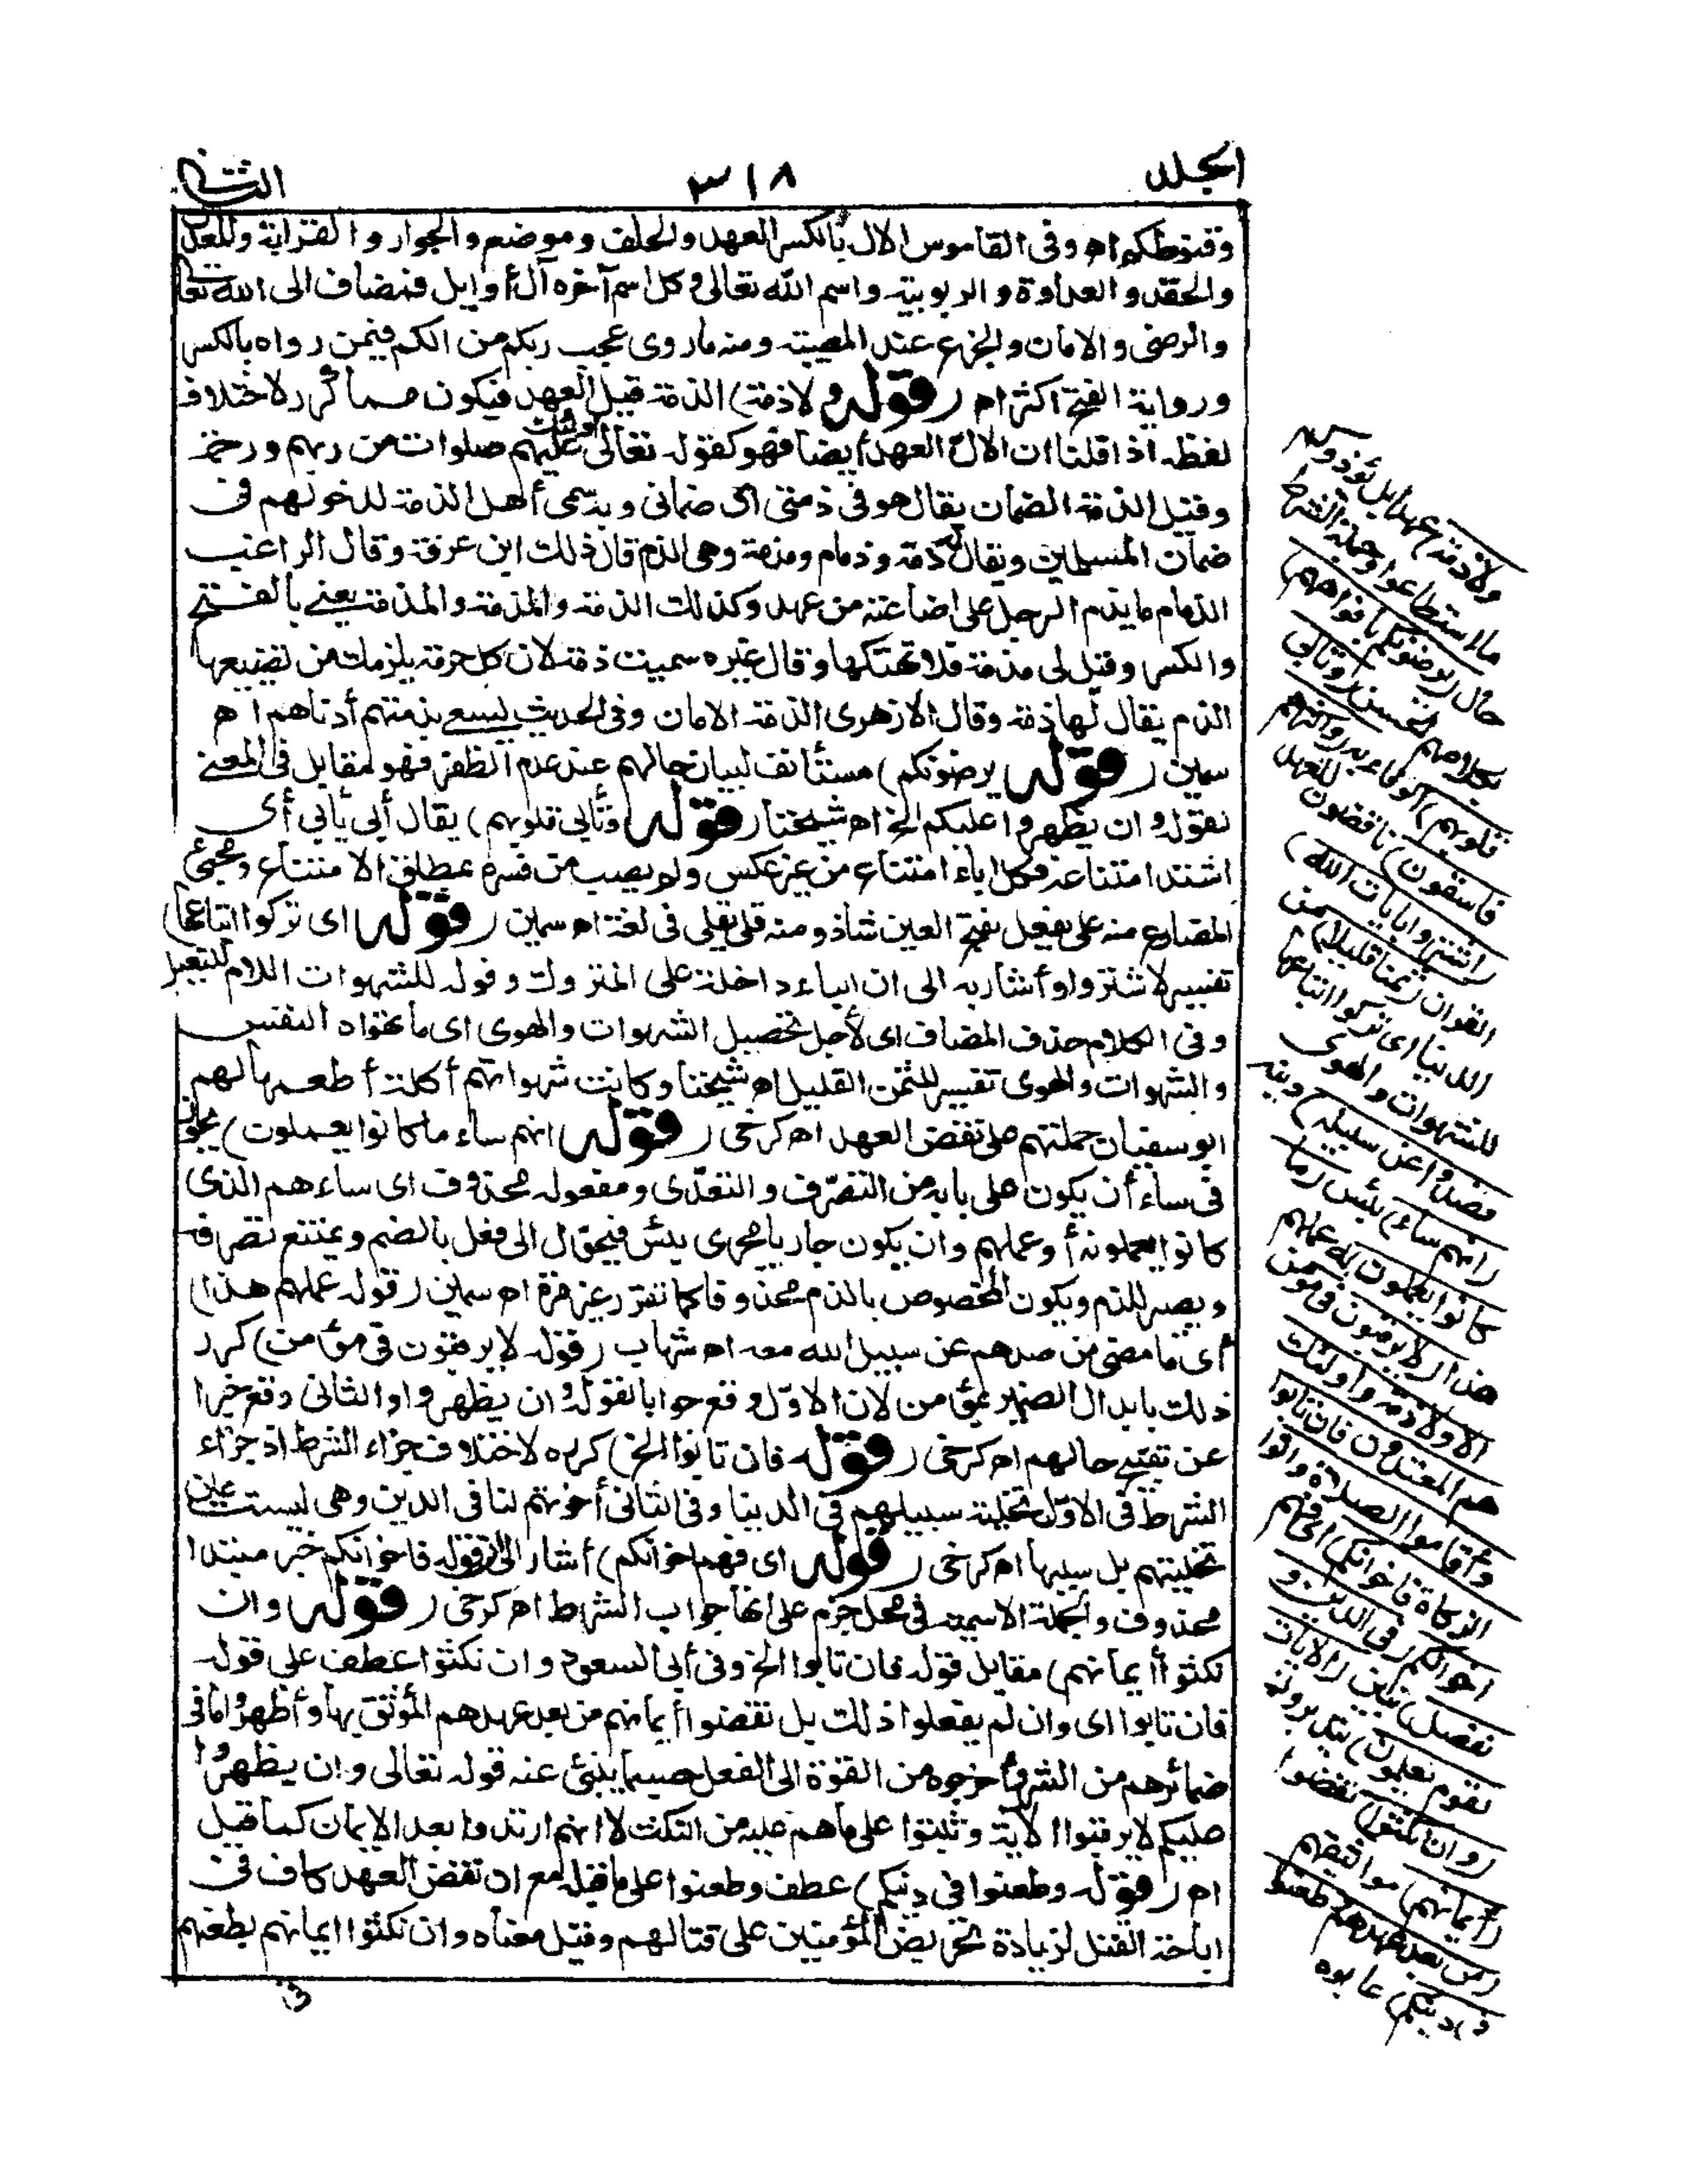 المجلد
٣١٨
الثانى
وقنوطكم اه وفى القاموس الال بالكسر العهد والحلف وموضع والجوار والقرابة والمعدن
والحقد والعداوة والربوبية واسم الله تعالى وكل اسم آخره آل أو ايل فمضاف الى الله تعالى
والرضى والامان والجزع عند المصيبة ومنه ما روى عجب ربكم من الكم فيمن رواه بالكسر
ورواية الفتح اكثر اه (قوله ولا ذمة) الذمة قيل العهد فيكون مما كرر لاختلاف
لفظه اذا قلنا ان الال العهد أيضا فهو كقوله تعالى أولئك عليهم صلوات من ربهم ورحمة
وقيل الذمة الضمان يقال هو فى ذمتى اى ضمانى وبه سمى أهل الذمة لدخولهم فى
ضمان المسلمين ويقال له ذمة وذمام ومذمة وهى الذم قال ذلك ابن عرفة وقال الراغب
الذمام ما يذم الرجل على اضاعته من عهد وكذلك الذمة والمذمة والمذمة يعنى بالفتح
والكسر وقيل لى مذمة فلا تهتكها وقال غيره سميت ذمة لان كل حرمة يلزمك من تضييعها
الذم يقال لها ذمة وقال الازهرى الذمة الامان وفى الحديث يسعى بذمتهم أدناهم اه
سمين (قوله يرضونكم) مستأنف لبيان حالهم عند عدم الظفر فهو مقابل فى المعنى
لقوله وان يظهروا عليكم الخ اه شيخنا (قوله وتأبى قلوبهم) يقال أبى يأبى أى
اشتد امتناعه فكل اباء امتناع من غير عكس ولم يصب من فسره بمطلق الامتناع ومجىء
المضارع منه على يفعل بفتح العين شاذ ومنه قلى يقلى فى لغة اه سمين (قوله اى تركوا اتباعها)
تفسير لاشتروا وأشار به الى ان الباء داخلة على المتروك وقوله للشهوات اللام للتعليل
وفى الكلام حذف المضاف اى لأجل تحصيل الشهوات والهوى اى ما تهواه النفس
والشهوات والهوى تفسير للثمن القليل اه شيخنا وكانت شهواتهم أكلة أطعمها لهم
ابو سفيان حملتهم على نقض العهد اه كرخى (قوله انهم ساء ما كانوا يعملون) يجوز
فى ساء أن يكون على بابه من التصرف والتعدى ومفعوله محذوف اى ساءهم الذى
كانوا يعملونه أو عملهم وان يكون جاريا مجرى بئس فيحول الى فعل بالضم ويمتنع تصرفه
ويصير للذم ويكون المخصوص بالذم محذوفا كما تقرر غير مرة اه سمين (قوله عملهم هذا)
أى ما مضى من صدهم عن سبيل الله معه اه شهاب (قوله لا يرقبون فى مؤمن) كرر
ذلك بابدال الضمير بمؤمن لان الاول وقع جوابا لقوله وان يظهروا والثانى وقع خبرا
عن تقبيح حالهم اه كرخى (قوله فان تابوا الخ) كرره لاختلاف جزاء الشرط اذ جزاء
الشرط فى الاول تخلية سبيلهم فى الدنيا وفى الثانى أخوتهم لنا فى الدين وهى ليست عين
تخليتهم بل سببها اه كرخى (قوله اى فهم اخوانكم) أشار الى ان قوله فاخوانكم خبر مبتدا
محذوف والجملة الاسمية فى محل جزم على انها جواب الشرط اه كرخى (قوله وان
نكثوا أيمانهم) مقابل قوله فان تابوا الخ وفى أبى السعود وان نكثوا عطف على قوله
فان تابوا اى وان لم يفعلوا ذلك بل نقضوا أيمانهم من بعد عهدهم المؤثق بها وأظهروا ما فى
ضمائرهم من الشر وأخرجوه من القوة الى الفعل حسبما ينبئ عنه قوله تعالى وان يظهروا
عليكم لا يرقبوا الآية وثبتوا على ما هم عليه من النكث لا انهم ارتدوا بعد الايمان كما قيل
اه (قوله وطعنوا فى دينكم) عطف وطعنوا على ما قبله مع ان نقض العهد كاف فى
اباحة القتل لزيادة تحريض المؤمنين على قتالهم وقيل معناه وان نكثوا ايمانهم بطعنهم
فى
ولا ذمة) عهدا بل يؤذوكم
ما استطاعوا وجملة الشرط
حال (يرضونكم بافواههم)
بكلامهم الحسن (وتأبى
قلوبهم) الوفاء به (واكثرهم
فاسقون) ناقضون للعهد
(اشتروا بايات الله)
القران (ثمنا قليلا) من
الدنيا اى تركوا اتباعها
للشهوات والهوى
فصدوا عن سبيله) دينه
(انهم ساء) بئس (ما
كانوا يعملون) ـه عملهم
هذا (لا يرقبون فى مؤمن
الا ولا ذمة واولئك
هم المعتدون فان تابوا
وأقاموا الصلاة واتوا
الزكاة فاخوانكم) اى فهم
اخوانكم (فى الدين و
نفصل) نبين (الايات
لقوم يعلمون) يتدبرون
(وان نكثوا) نقضوا
(أيمانهم) مواثيقهم
(من بعد عهدهم وطعنوا
فى دينكم) عابوه